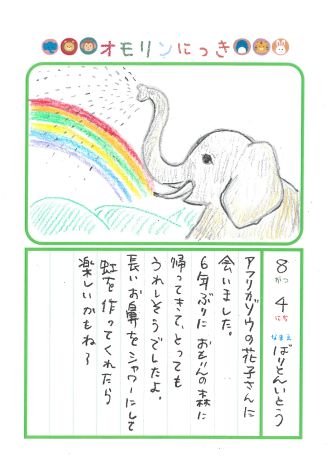 オモリンにっき
8がつ4にち なまえ ばりとんいとう
アフリカゾウの花子さんに
会いました。
6年ぶりに おもりんの森に
帰ってきて、とっても
うれしそうでしたよ。
長いお鼻をシャワーにして
虹を作ってくれたら
楽しいかもね〜